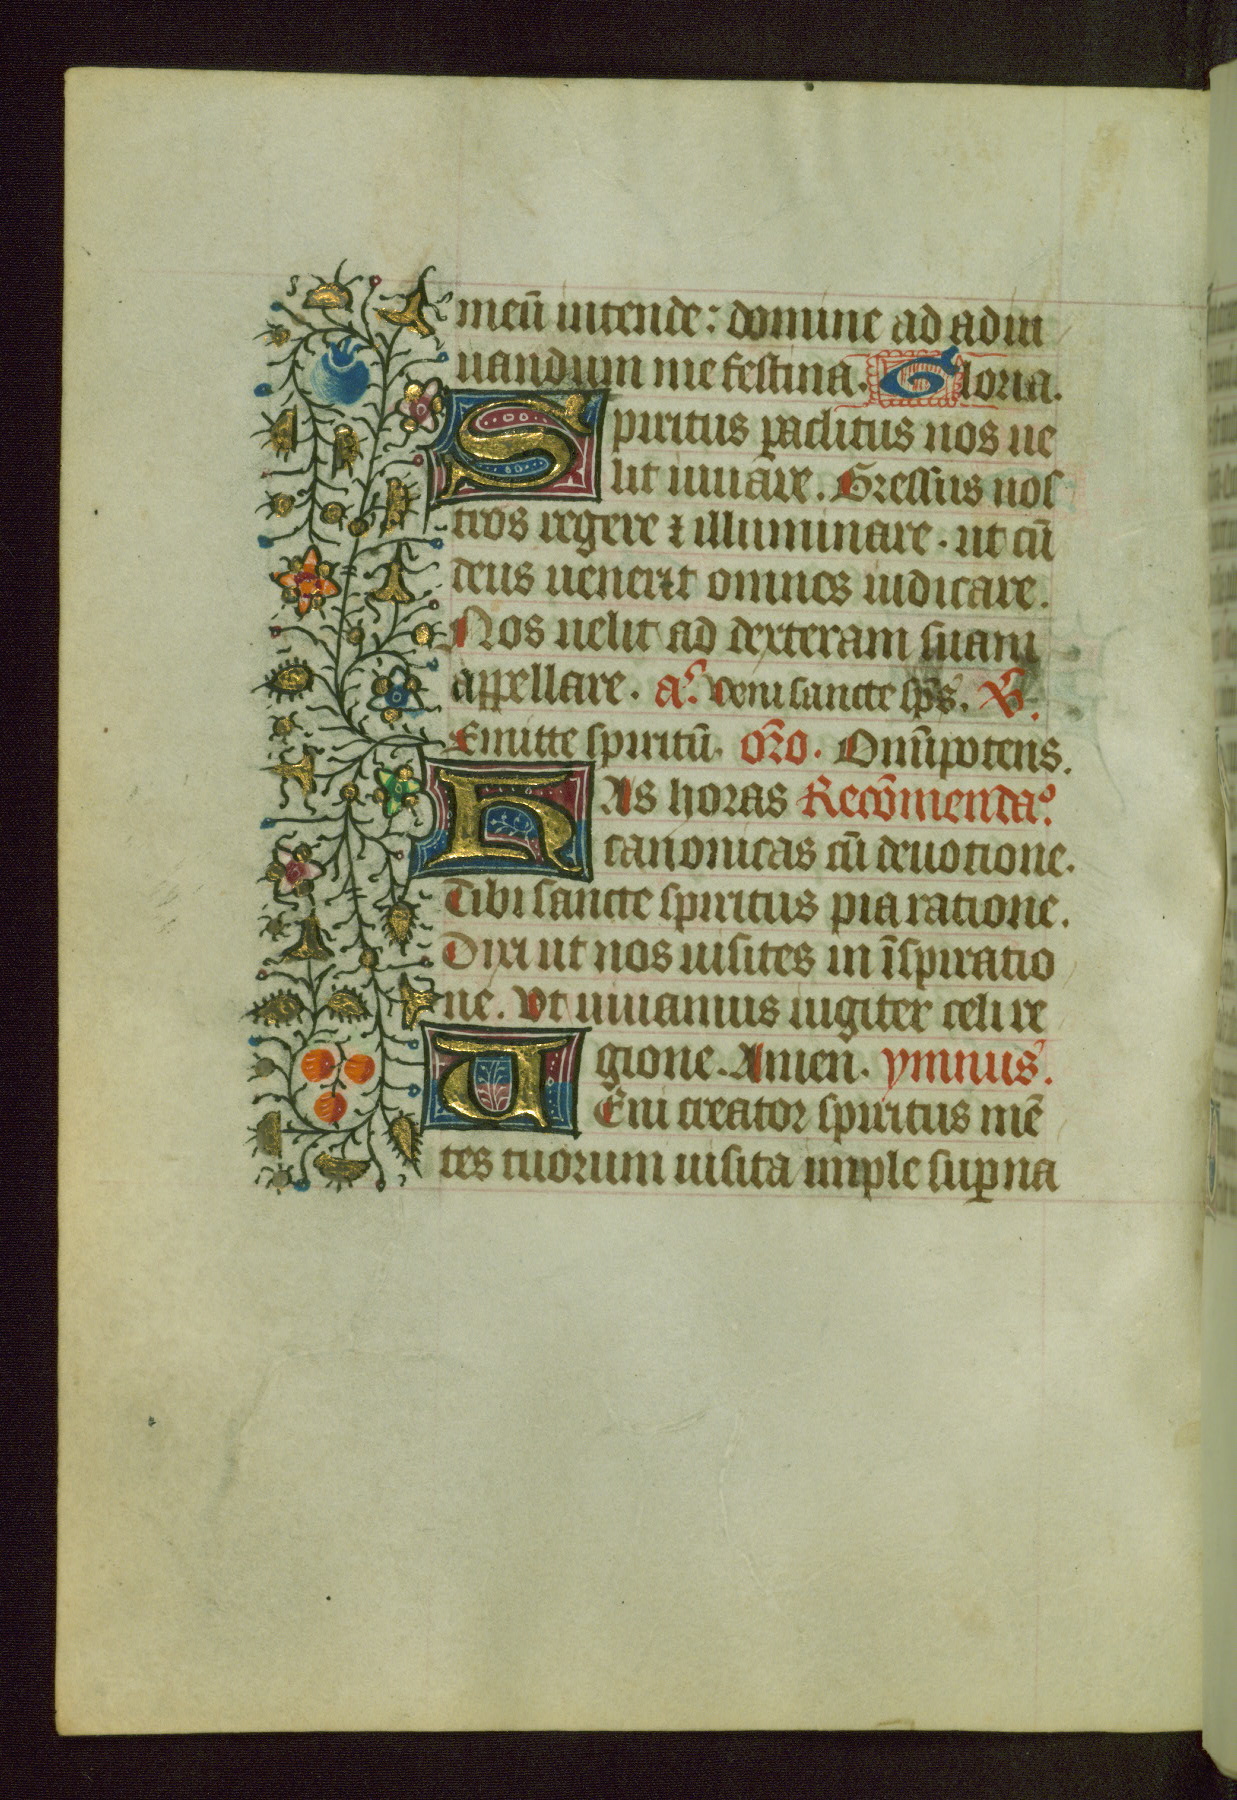 meū intende: domine ad adiu
uandum me festina. Gloria.
Spiritus paclitus nos ue
lit iuuare. Gressus nos
tros regere ⁊ illuminare. ut cū
deus uenerit omnes iudicare.
Nos uelit ad dexteram suam
appellare. a᷒. Veni sancte sp̄s. v᷒.
Emitte spiritū. or̄o. Om̄ipotens.
HAs horas Recōmendaº.
canonicas cū deuotione.
Tibi sancte spiritus pia ratione.
Dixi ut nos uisites in īspiratio
ne. Vt uiuamus iugiter celi re
gione. Amen. ymnus.
UEni creator spiritus mē
tes tuorum uisita imple supna